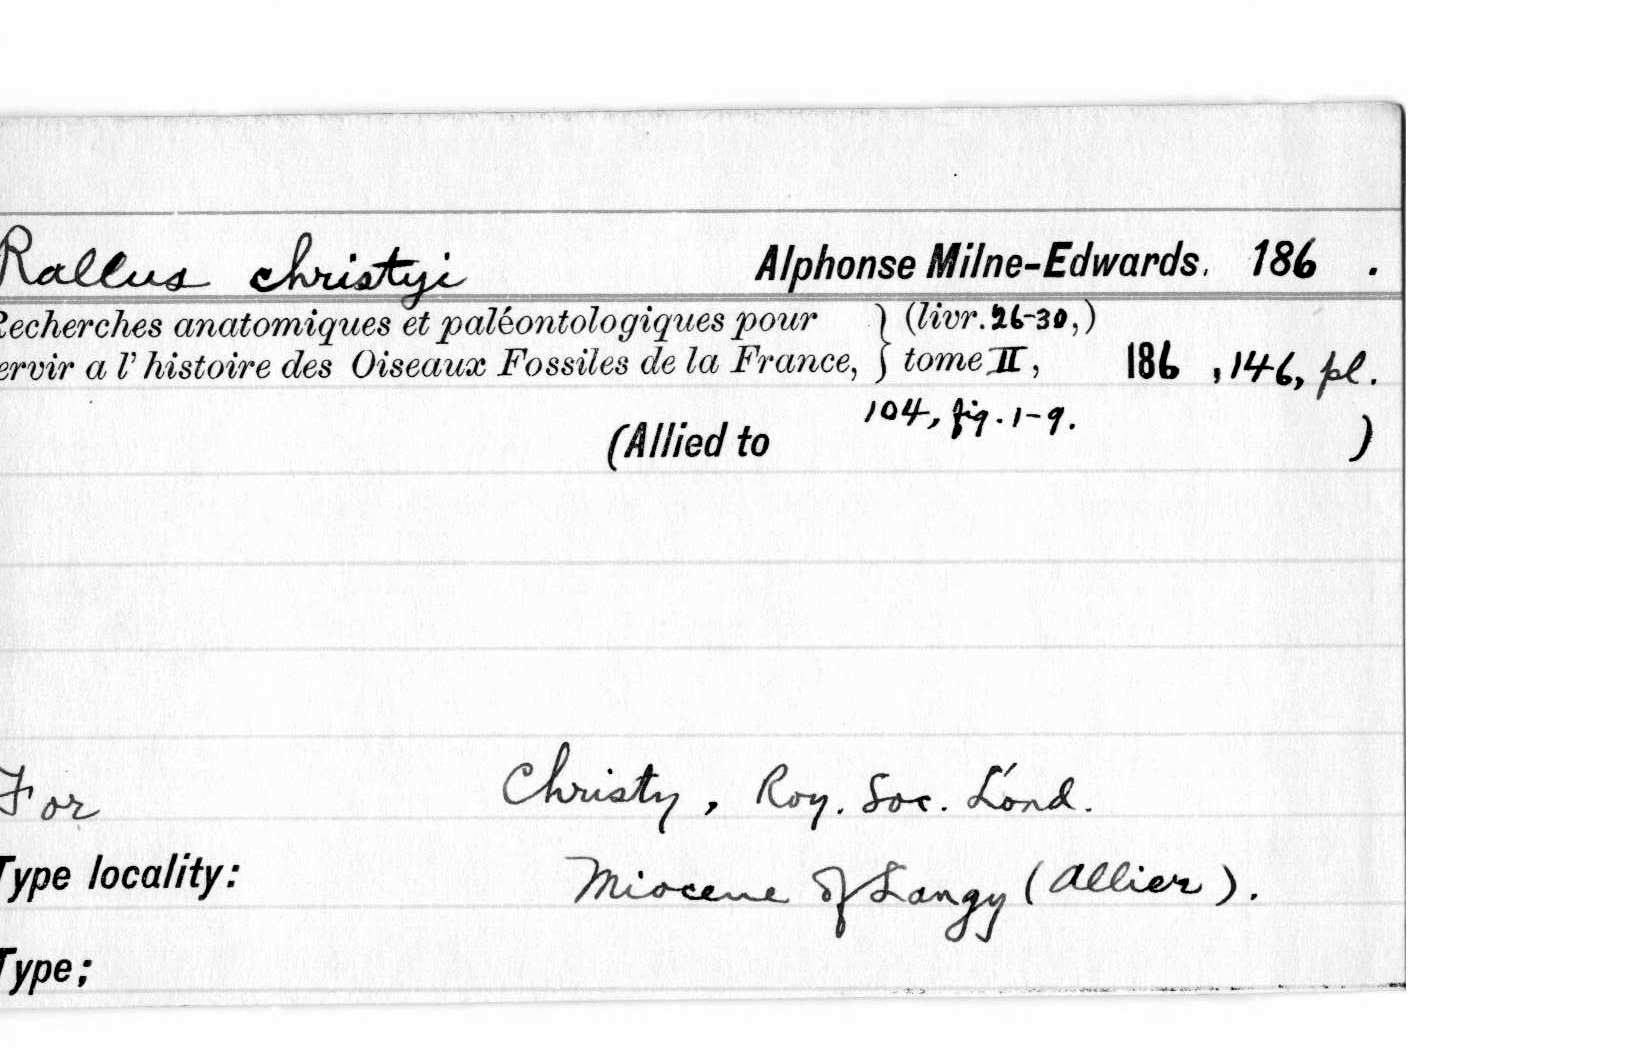 Rallus christyi Alphonse Milne-Edwards. 186 .
Recherches anatomiques et paléontologiques pour } (livr. 26-30,)
ervir a l' histoire des Oiseaux Fossiles de la France, } tome II, 186 , 146, pl.
104, fig. 1-9.
(Allied to )
For Christy, Roy. Soc. Lond.
Type locality: Miocene of Langy (Allier).
Type;